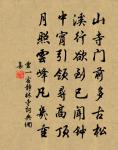 山寺門前多古松
溪行欲到已聞鐘
中宵引領尋高頂
月照雲峰凡幾重
靈一宿靜林寺
集